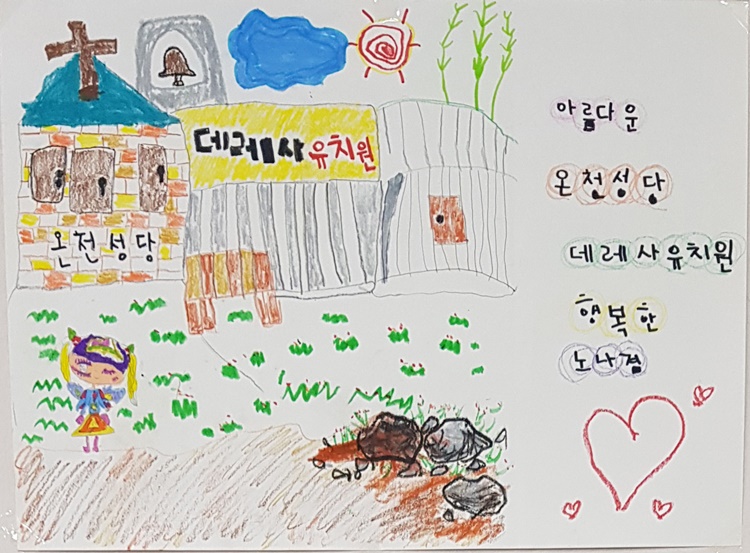 데레사유치원
온천성당
아름다운
온천성당
데레사유치원
행복한
노나겸